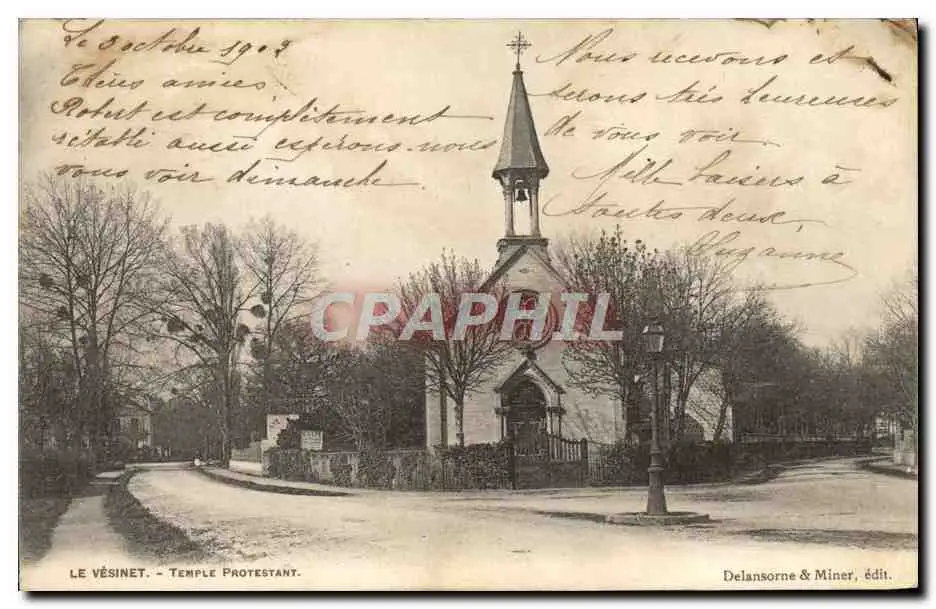 Le 3 octobre 1903
Chères amies
Robert est complètement
rétabli aussi espérons-nous
vous voir dimanche
Nous recevons et
serons très heureuses
de vous voir
Mille baisers à
toutes deux
Suzanne
CPAPHIL
LE VÉSINET. - TEMPLE PROTESTANT.
Delansorne & Miner, édit.